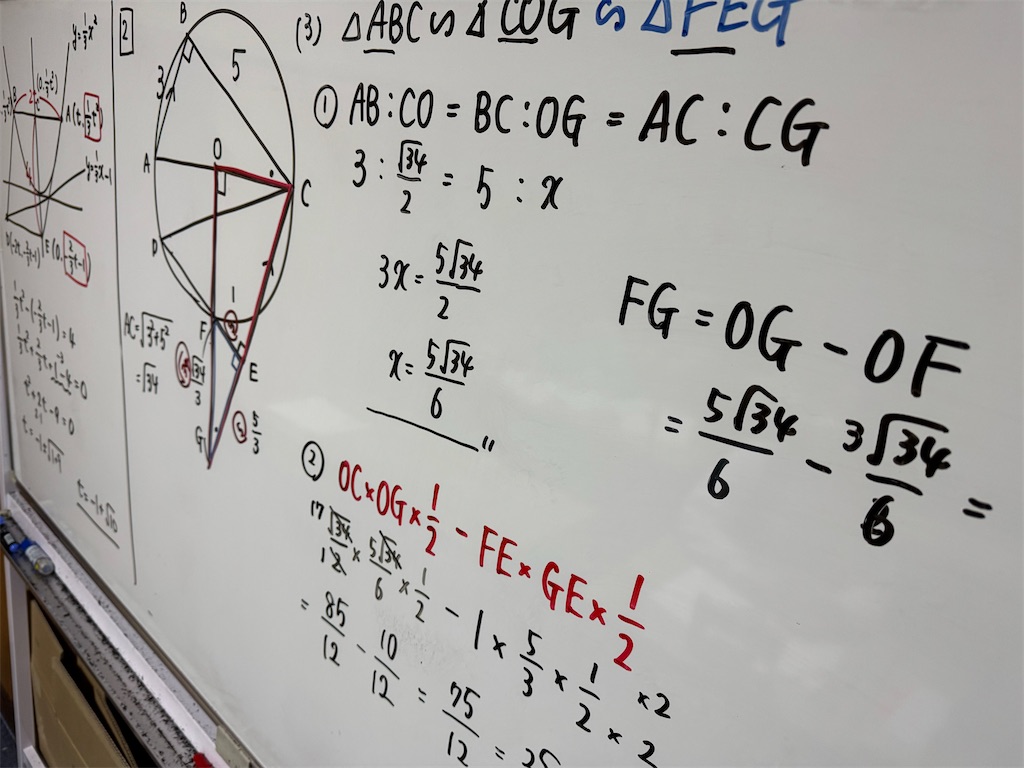 y=⅓x²
A(t, ⅓t²)
y=⅓x-1
E(0, -⅔t-1)
⅓t²-(-⅔t-1)=4
t²+2t-9=0
t=-1+√10
2
B
3
5
A
O
C
D
1
F
E
G
√34/3
5/3
AC=√3²+5²
=√34
(3) △ABC∽△COG∽△FEG
① AB:CO=BC:OG=AC:CG
3:√34/2=5:x
3x=5√34/2
x=5√34/6
FG=OG-OF
=5√34/6-3√34/6=
② OC×OG×1/2-FE×GE×1/2
17
√34/12×5√34/6×1/2-1×5/3×1/2×2×2
=85/12-10/12=75/12=25